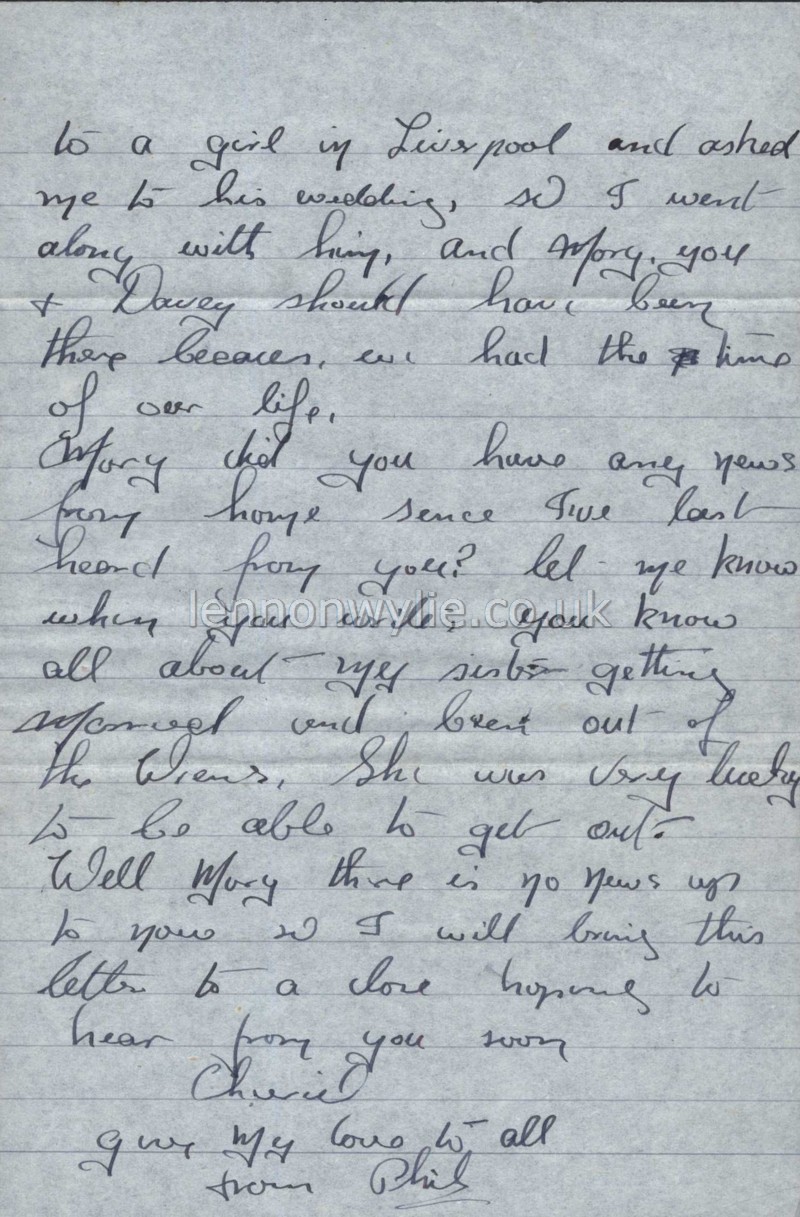 to a girl in Liverpool and asked
me to his wedding, so I went
along with him, and Mary, you
+ Davey should have been
there becaues, we had the time
of our life,
Mary did you have any news
from home sence I've last
heard from you? let me know
when you write, you know
lennonwylie.co.uk
all about my sister getting
Married and been out of
the Wrens, She was very lucky
to be able to get out.
Well Mary there is no news up
to now so I will bring this
letter to a close hopeing to
hear from you soon
Cheerio
give my love to all
from Phil